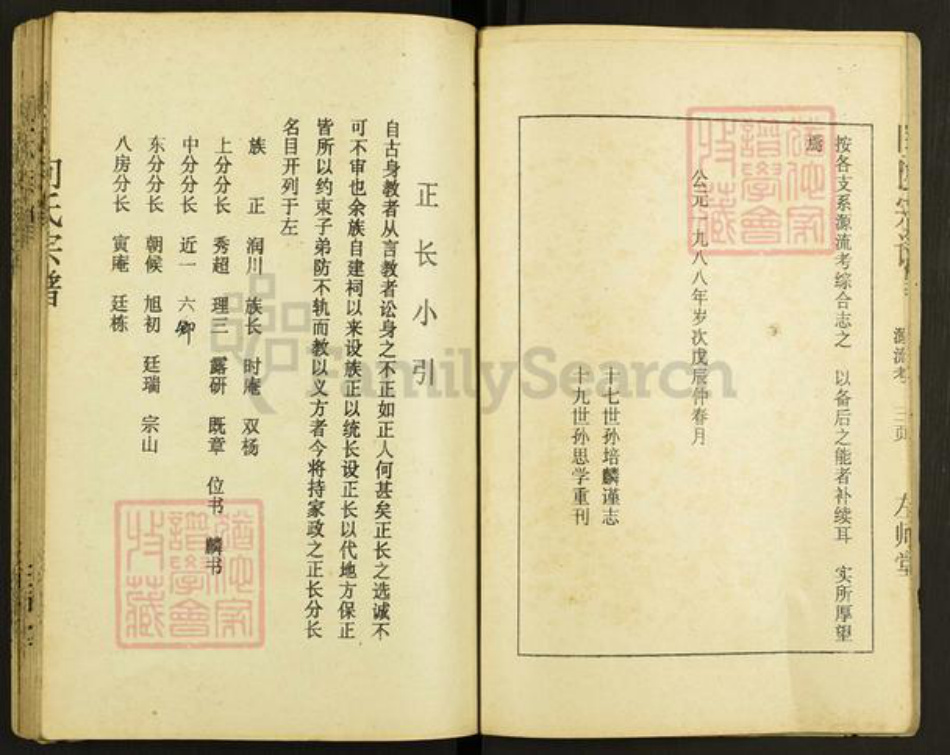 源流考 三页 左帅堂
按各支系源流考综合志之 以备后之能者补续耳 实所厚望
焉
公元一九八八年岁次戊辰仲春月
十七世孙培麟谨志
十九世孙思学重刊
正长小引
自古身教者从言教者讼身之不正如正人何甚矣正长之选诚不
可不审也余族自建祠以来设族正以统长设正长以代地方保正
皆所以约束子弟防不轨而教以义方者今将持家政之正长分长
名目开列于左
族 正 润川 族长 时庵 双杨
上分分长 秀超 理三 露研 既章 位书 麟书
中分分长 近一 六卿
东分分长 朝候 旭初 廷瑞 宗山
八房分长 寅庵 廷栋
氏宗谱
FamilySearch